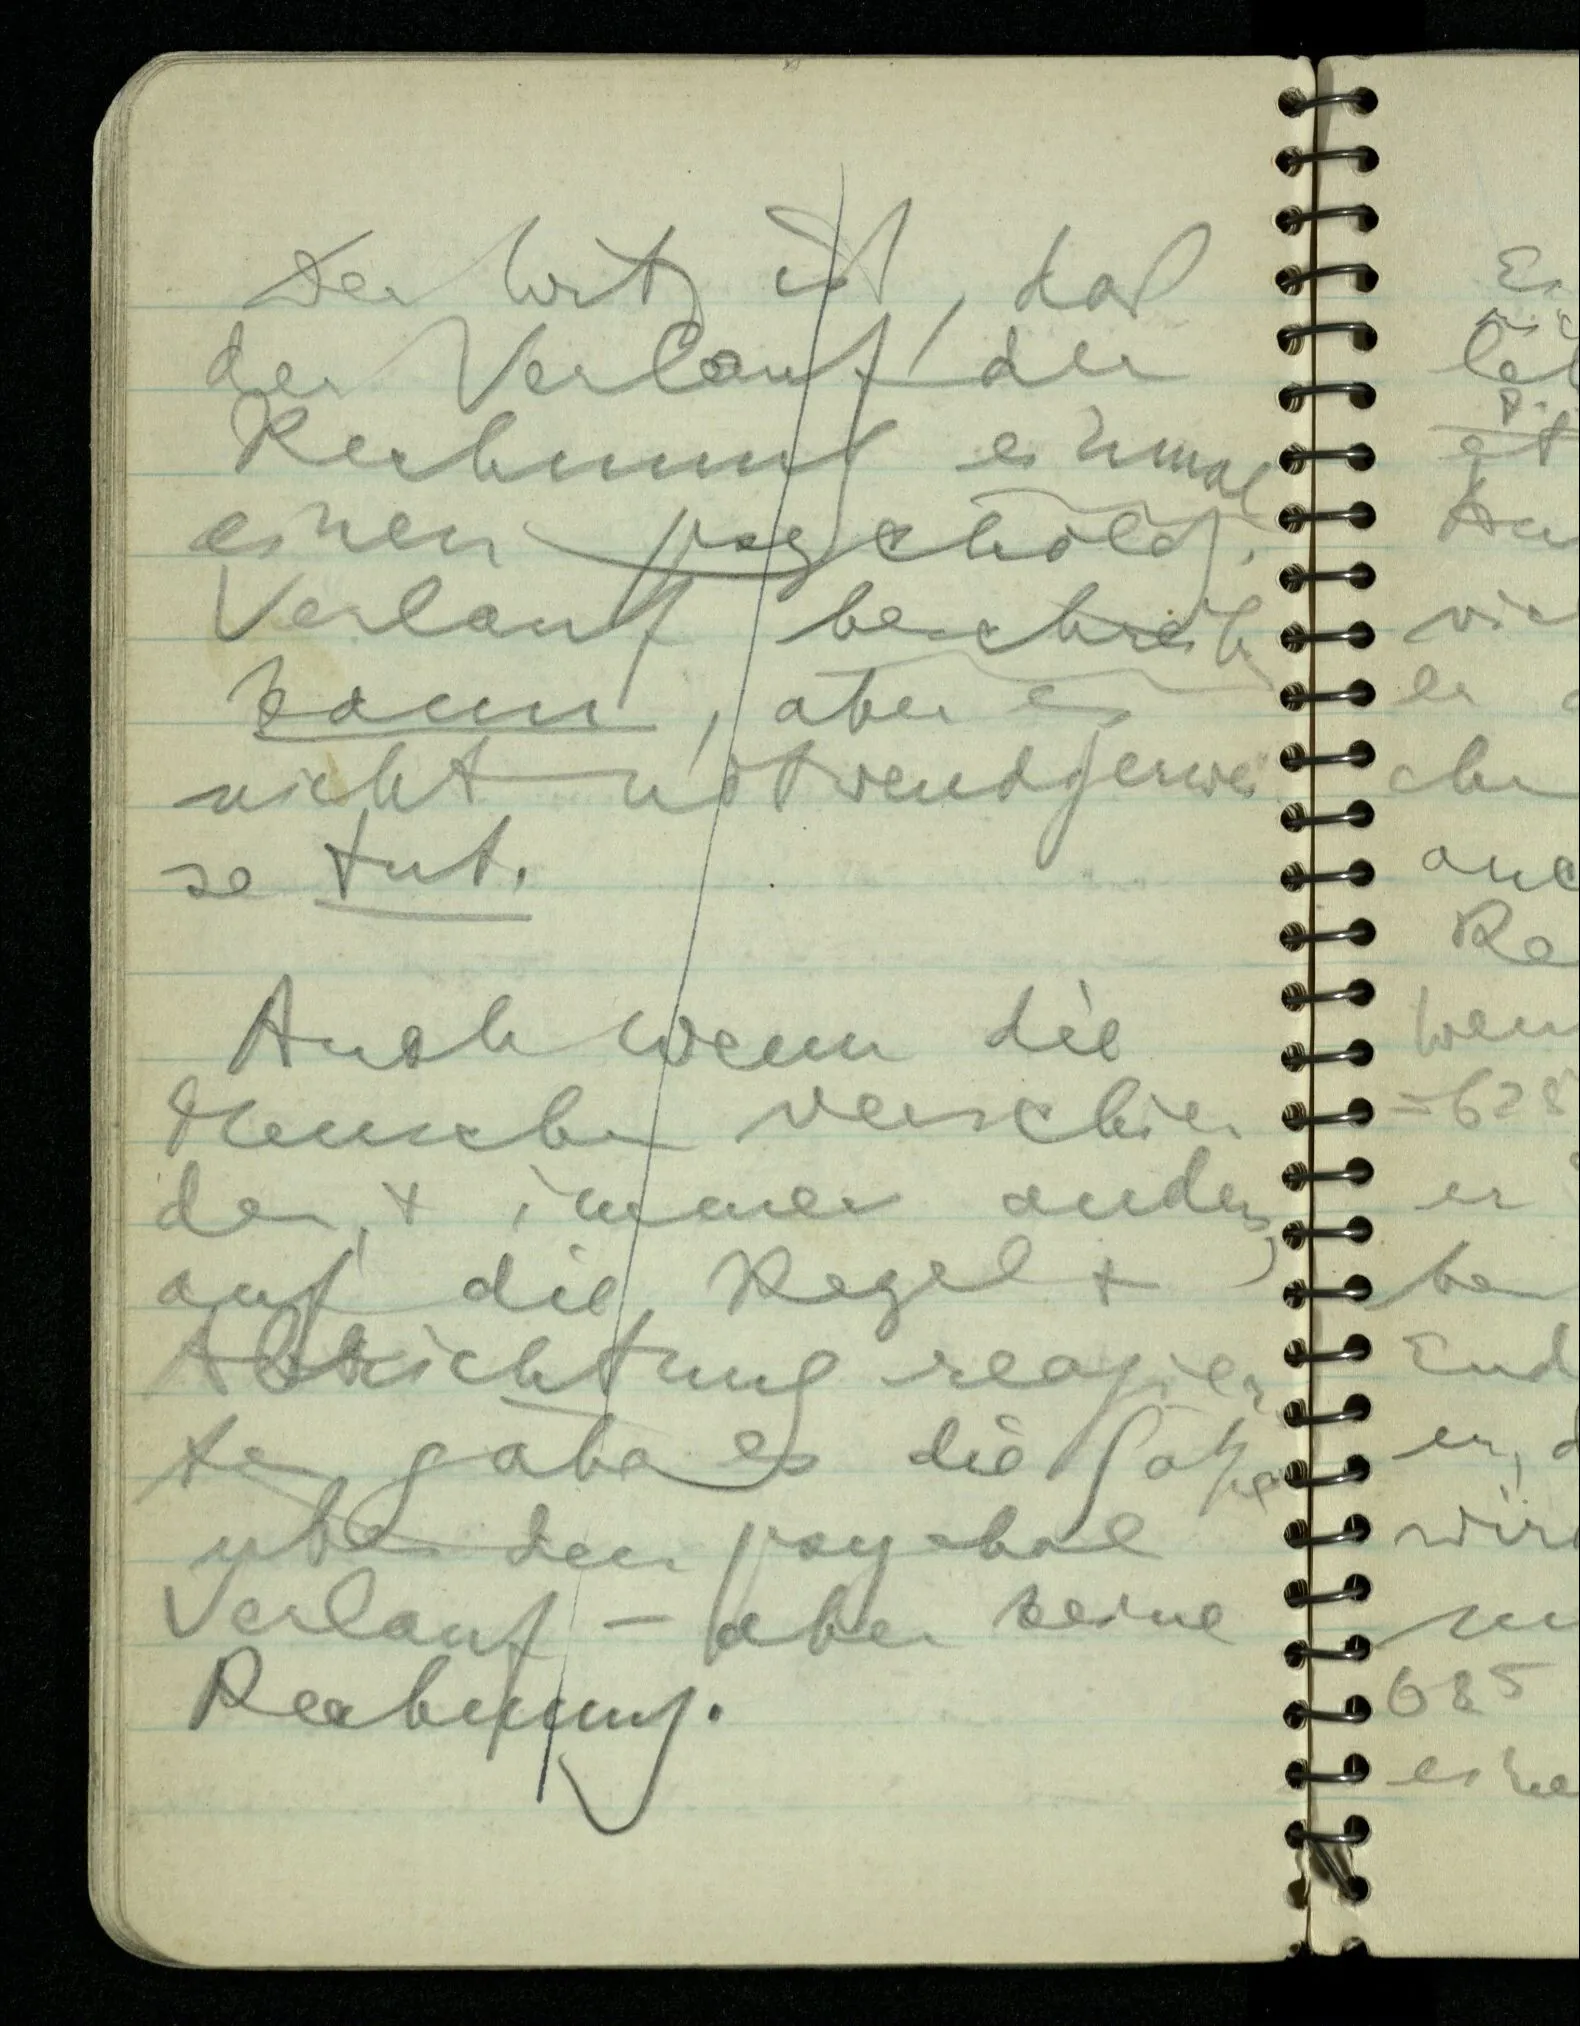 Der Witz ist, daß
der Verlauf der
Rechnung einmal
einen psycholog.
Verlauf beschreib
kann, aber es
nicht notwendigerwei
se tut.
Auch wenn die
Menschen verschie
den, + immer anders,
auf die Regel +
Abrichtung reagier
ten gäbe es die Sätze
über den psychol
Verlauf – aber keine
Rechnung.
er
auc
Re
wen
=628
er
be
End
er, d
wir
685
eine